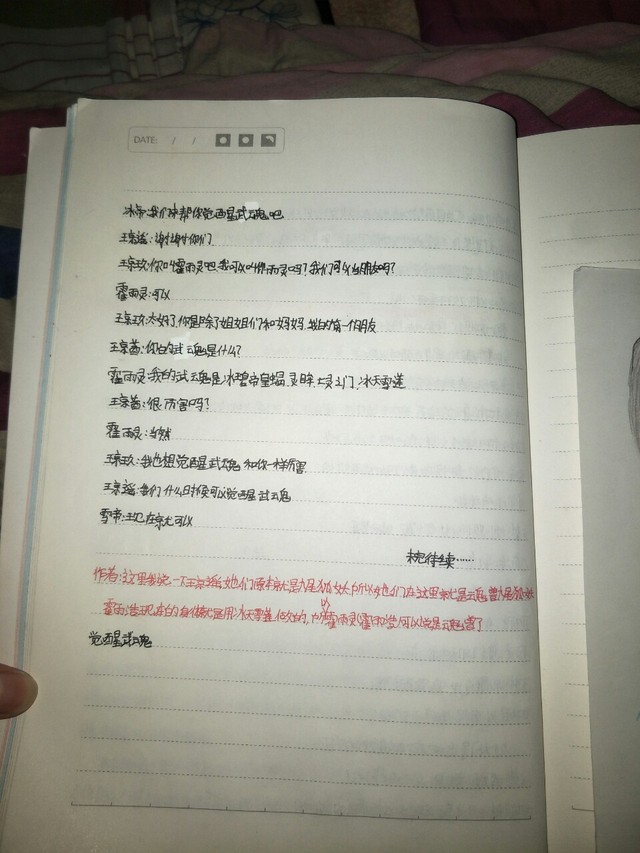 DATE: / /
冰帝:我们来帮你觉醒武魂吧
王京谣:谢谢你们
王京玖:你叫霍雨灵吧,我可以叫你雨灵吗?我们可以当朋友吗?
霍雨灵:可以
王京玖:太好了,你是除了姐姐们和妈妈,我的第一个朋友
王京茜:你的武魂是什么?
霍雨灵:我的武魂是冰碧帝皇蝎,灵眸,冰天雪莲
王京茜:很厉害吗?
霍雨灵:当然
王京玖:我也想觉醒武魂,和你一样厉害
王京谣:我们什么时候可以觉醒武魂
雪帝:现在就可以
未完待续……
作者:这里我说一下王京谣,她们原本就是九尾狐妖,所以她们在这里就是武魂
霍雨浩现在的身体就是用冰天雪莲做的,所以霍雨灵(霍雨浩)可以说是武魂
觉醒武魂